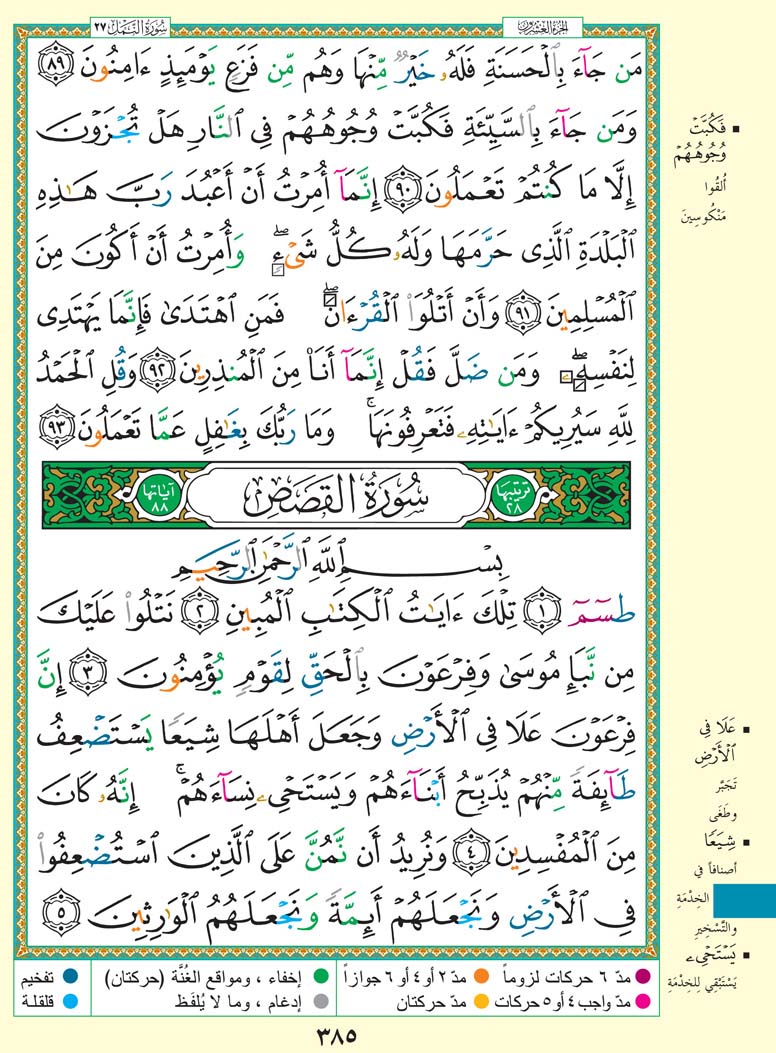 الجزء العشرون
سورة النمل ٢٧
مَن جَآءَ بِالْحَسَنَةِ فَلَهُۥ خَيْرٌ مِّنْهَا وَهُم مِّن فَزَعٍ يَوْمَئِذٍ ءَامِنُونَ ٨٩
وَمَن جَآءَ بِالسَّيِّئَةِ فَكُبَّتْ وُجُوهُهُمْ فِى النَّارِ هَلْ تُجْزَوْنَ
إِلَّا مَا كُنتُمْ تَعْمَلُونَ ٩٠ إِنَّمَآ أُمِرْتُ أَنْ أَعْبُدَ رَبَّ هَٰذِهِ
الْبَلْدَةِ الَّذِى حَرَّمَهَا وَلَهُۥ كُلُّ شَىْءٍ ۖ وَأُمِرْتُ أَنْ أَكُونَ مِنَ
الْمُسْلِمِينَ ٩١ وَأَنْ أَتْلُوَا الْقُرْءَانَ ۖ فَمَنِ اهْتَدَىٰ فَإِنَّمَا يَهْتَدِى
لِنَفْسِهِۦ ۖ وَمَن ضَلَّ فَقُلْ إِنَّمَآ أَنَا۠ مِنَ الْمُنذِرِينَ ٩٢ وَقُلِ الْحَمْدُ
لِلَّهِ سَيُرِيكُمْ ءَايَٰتِهِۦ فَتَعْرِفُونَهَا ۚ وَمَا رَبُّكَ بِغَٰفِلٍ عَمَّا تَعْمَلُونَ ٩٣
ترتيبها ٢٨
سُورَةُ القَصَصِ
آياتها ٨٨
بِسْمِ اللَّهِ الرَّحْمَٰنِ الرَّحِيمِ
طسٓمٓ ١ تِلْكَ ءَايَٰتُ الْكِتَٰبِ الْمُبِينِ ٢ نَتْلُوا عَلَيْكَ
مِن نَّبَإِ مُوسَىٰ وَفِرْعَوْنَ بِالْحَقِّ لِقَوْمٍ يُؤْمِنُونَ ٣ إِنَّ
فِرْعَوْنَ عَلَا فِى الْأَرْضِ وَجَعَلَ أَهْلَهَا شِيَعًا يَسْتَضْعِفُ
طَآئِفَةً مِّنْهُمْ يُذَبِّحُ أَبْنَآءَهُمْ وَيَسْتَحْىِۦ نِسَآءَهُمْ ۚ إِنَّهُۥ كَانَ
مِنَ الْمُفْسِدِينَ ٤ وَنُرِيدُ أَن نَّمُنَّ عَلَى الَّذِينَ اسْتُضْعِفُوا
فِى الْأَرْضِ وَنَجْعَلَهُمْ أَئِمَّةً وَنَجْعَلَهُمُ الْوَٰرِثِينَ ٥
▪ فَكُبَّتْ
وُجُوهُهُمْ
أُلقُوا
مَنْكُوسِينَ
▪ عَلَا فِي
الْأَرْضِ
تَجَبَّر
وطَغَى
▪ شِيَعًا
أصنافاً في
الخِدْمَةِ
والتَّسْخِيرِ
▪ يَسْتَحْىِۦ
يَسْتَبْقِي لِلخِدْمَةِ
مدّ ٦ حركات لزوماً
مدّ ٢ أو ٤ أو ٦ جوازاً
إخفاء ، ومواقع الغُنَّة (حركتان)
تفخيم
مدّ واجب ٤ أو ٥ حركات
مدّ حركتان
إدغام ، وما لا يُلفَظ
قلقلة
٣٨٥